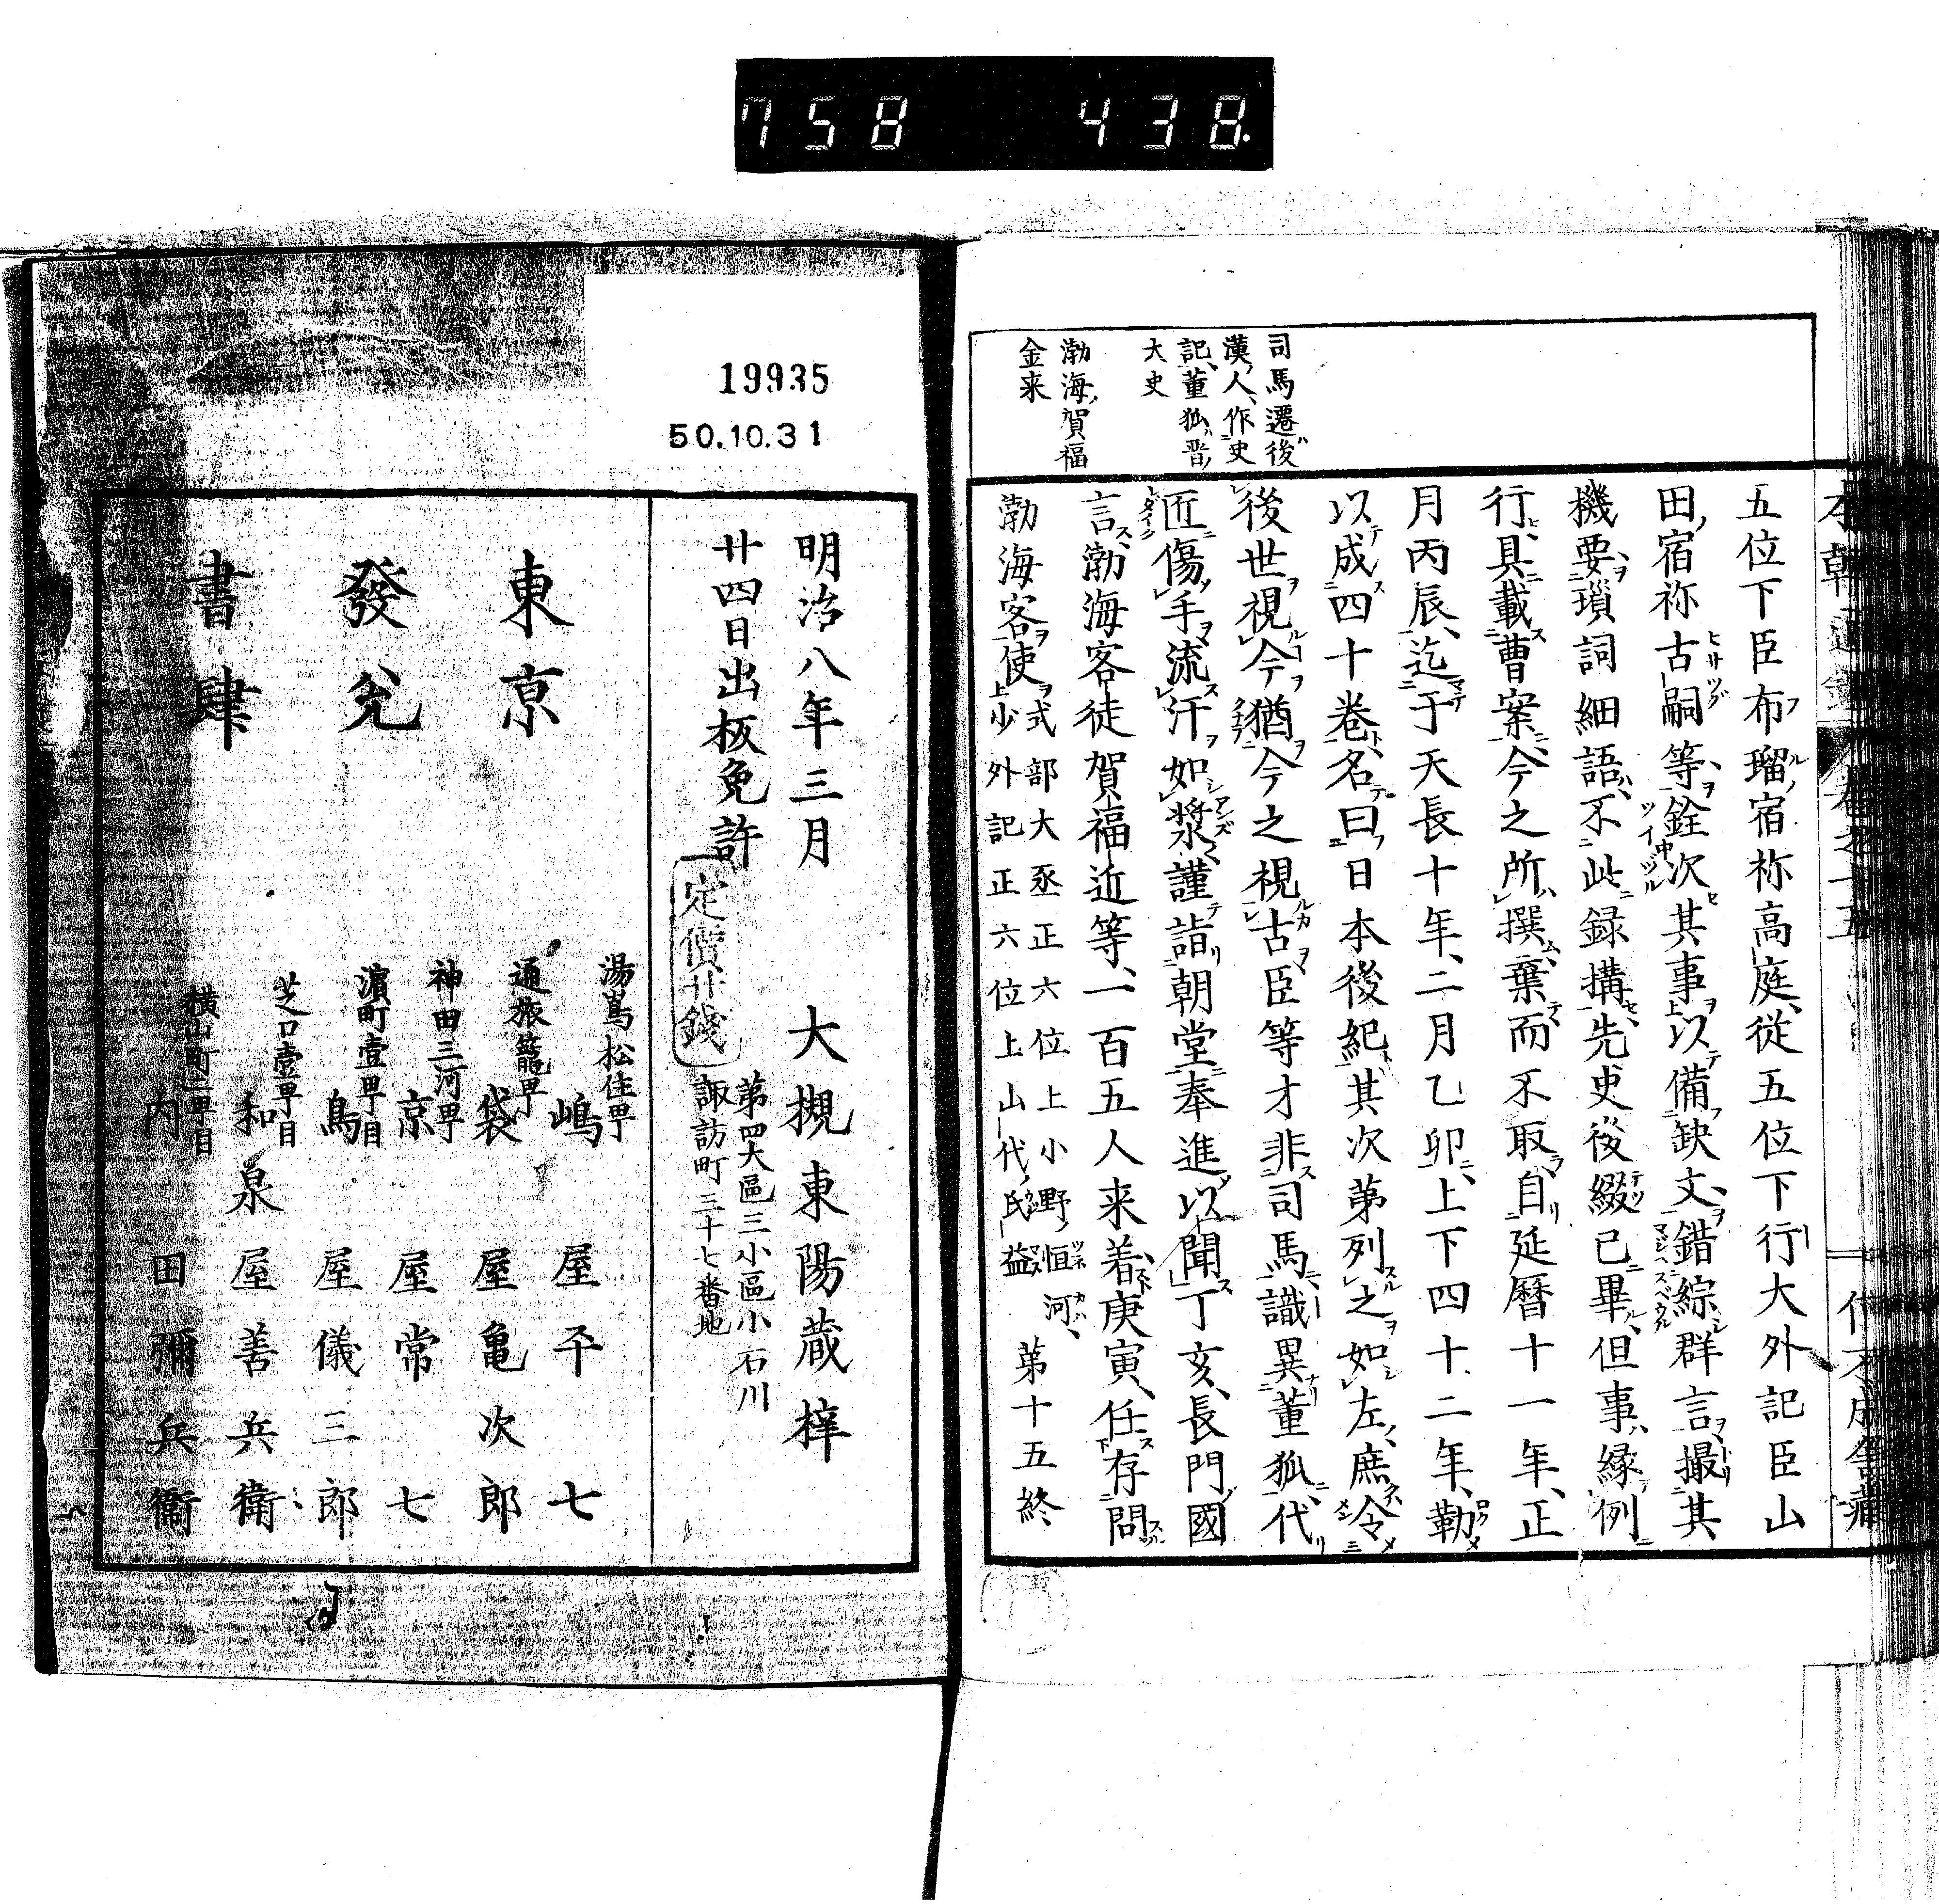 758 438.
司馬遷ハ後
漢ノ人、作史
記、董狐ハ晋ノ
大史
渤海ノ賀福
金来
五位下臣布瑠宿祢高庭、從五位下行大外記臣山
田宿祢古嗣等、銓次其事以備缺文、錯綜群言撮其
機要、瑣詞細語、不此録搆、先史後綴已畢、但事縁例
行、具載曹案、今之所撰、棄而不取、自延暦十一年、正
月丙辰、迄于天長十年、二月乙卯、上下四十二年、勒
以成四十卷、名曰日本後紀、其次第列之如左、庶令
後世視今猶今之視古、臣等才非司馬、識異董狐、代
匠傷手流汗如漿、謹詣朝堂奉進以聞丁亥、長門國
言、渤海客徒賀福近等、一百五人来着、庚寅、任存問
渤海客使式部大丞正六位上小野恒河、
少外記正六位上山代氏益
第十五終
19935
50.10.31
明治八年三月
廿四日出板免許
定價廿錢
大槻東陽蔵梓
第四大區三小區小石川
諏訪町三十七番地
東京
發兌
書肆
湯島松住町
嶋屋平七
通旅籠町
袋屋亀次郎
神田三河町
京屋常七
濵町壹丁目
鳥屋儀三郎
芝口壹丁目
和泉屋善兵衛
横山町三丁目
内田彌兵衞